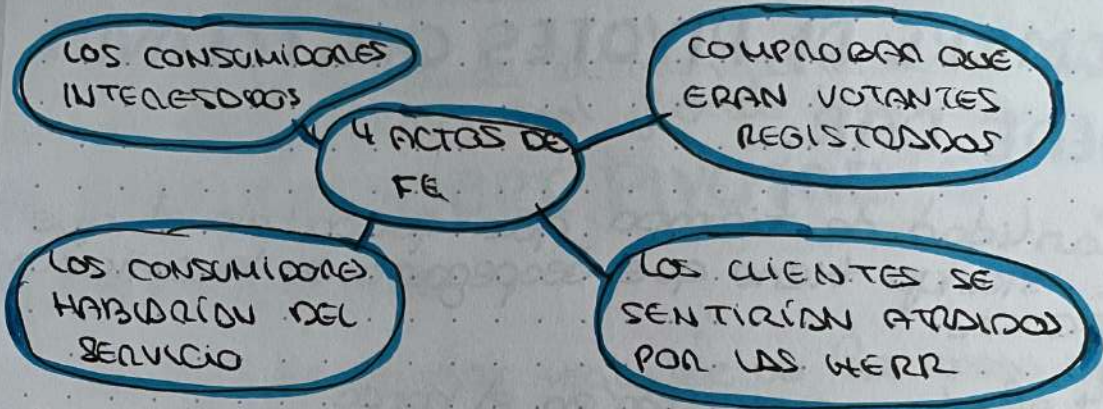 LOS CONSUMIDORES
INTERESADOS
COMPROBAR QUE
ERAN VOTANTES
REGISTRADOS
4 ACTOS DE
FE
LOS CONSUMIDORES
HABLARÍAN DEL
SERVICIO
LOS CLIENTES SE
SENTIRÍAN ATRAIDOS
POR LAS HERR